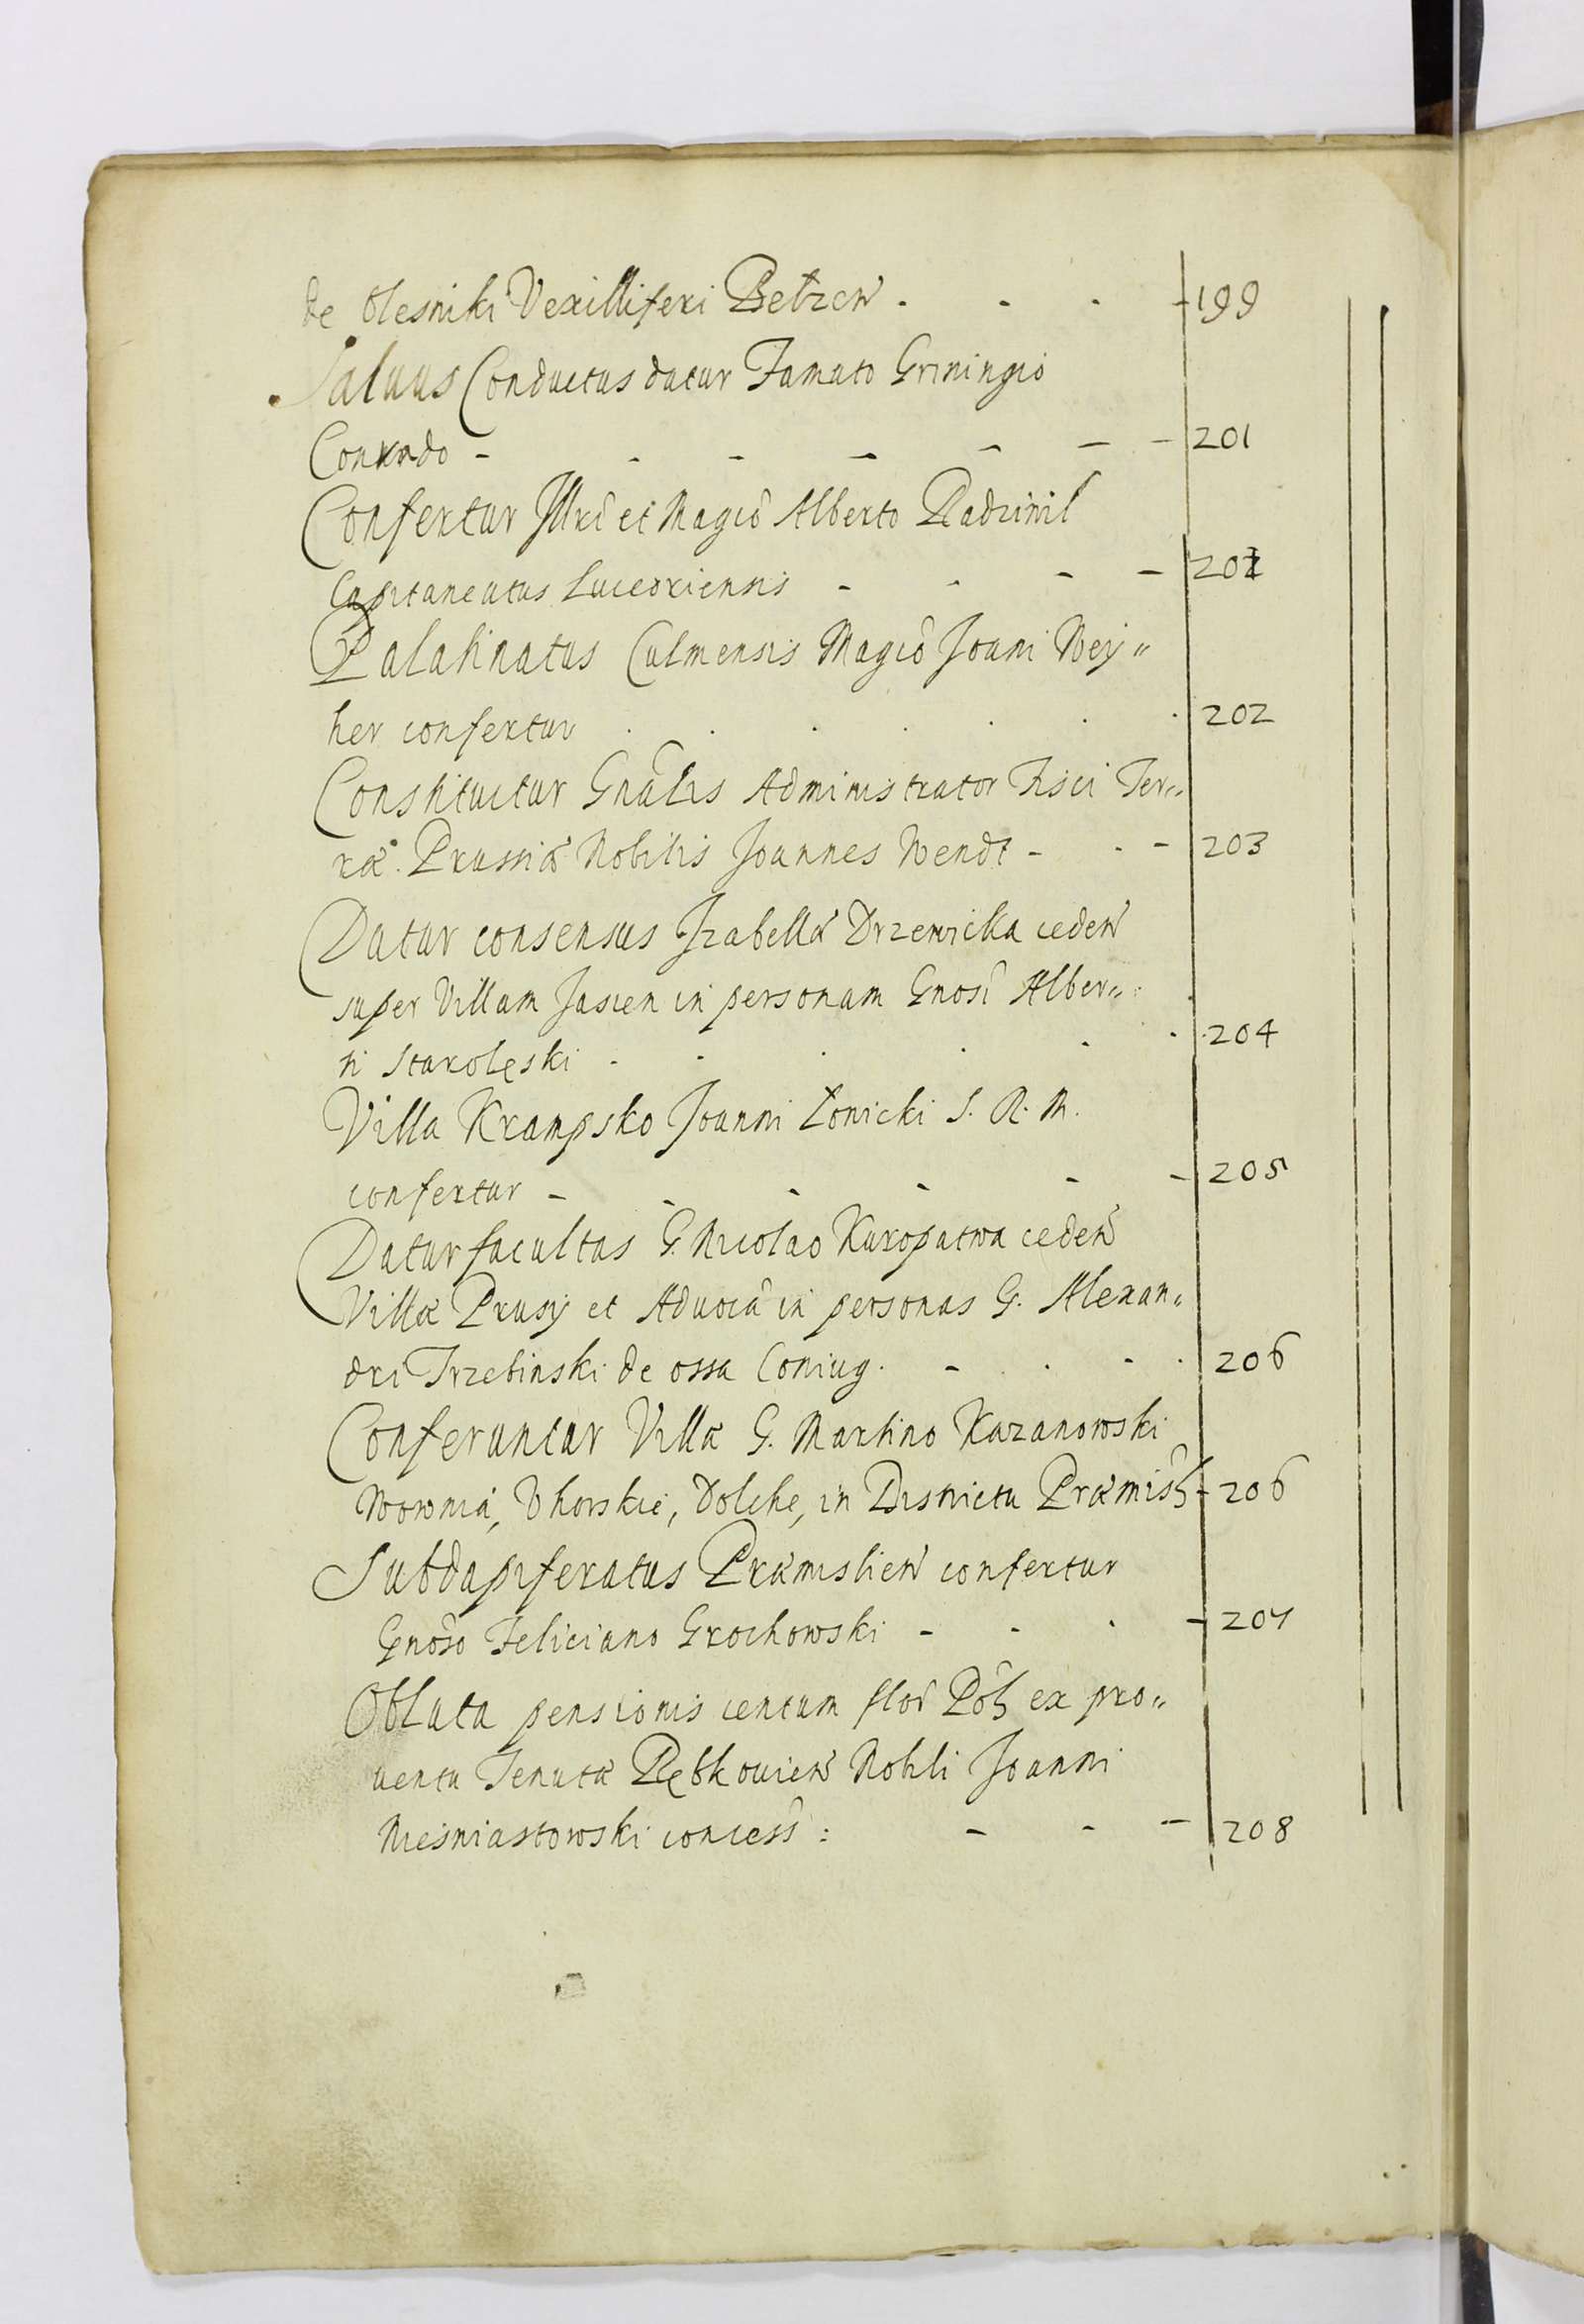 de Olesniki Vexilliferi Bełzen̄ - - - 199
Saluus Conductus datur Famato Griningio
Conrado - - - - - - 201
Confertur Illri et Magco Alberto Radziuil
Capitaneatus Luceoriensis - - - - 202
Palatinatus Culmensis Magco Joani Wey„
her confertur . . . . . . 202
Constituitur Gnalis Administrator Fisci Ter„
ræ Prussiæ Nobilis Joannes Wendt - - - 203
Datur consensus Izabellæ Drzewicka ceden̄
super Villam Jasien in personam Gnosi Alber„
ti Starolęski - - - - - - 204
Villa Krampsko Joanni Łonicki S. R. M.
confertur - - - - - - 205
Datur facultas G. Nicolao Kuropatwa ceden̄
Villæ Prusy et Aduocia in personas G. Alexan„
dri Trzebinski de ossa Coniug. - - - - 206
Conferuntur Villæ G. Martino Kazanowski
Wownia, Uhorskie, Dolche, in Districtu Præmisl - 206
Subdapiferatus Præmislien̄ confertur
Gnoso Feliciano Grochowski - - - - 207
Oblata pensionis centum flor Pol ex pro„
uentu Tenutæ Rębkouien̄ Nobli Joanni
Niesniastowski concess : - - - 208